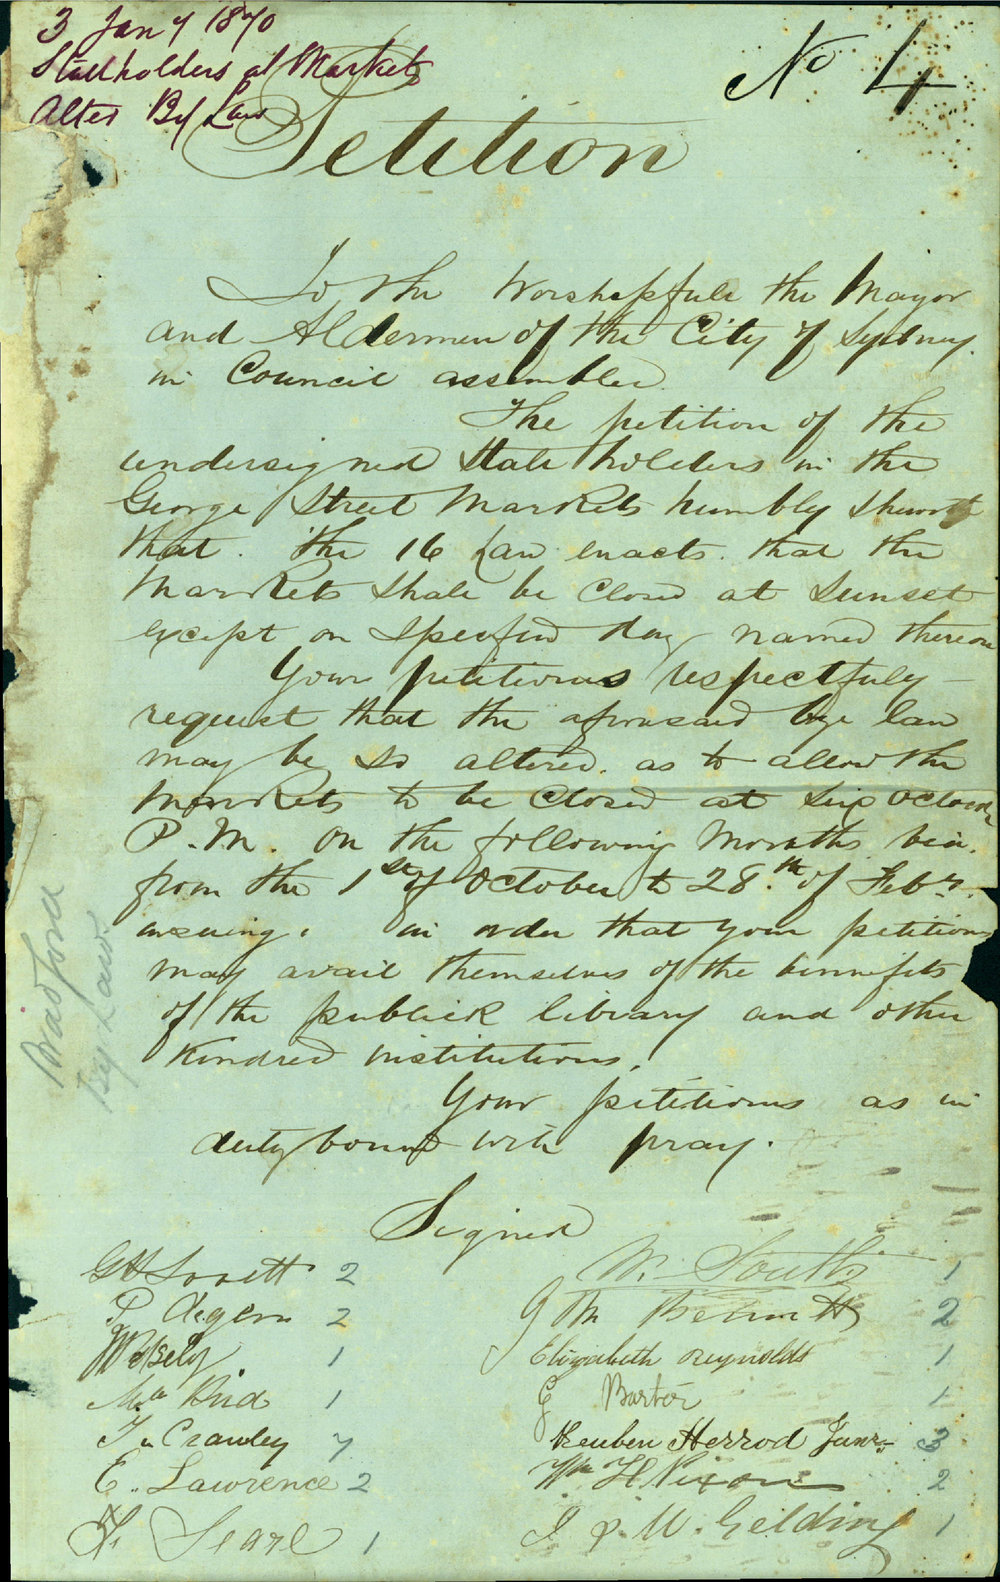 3 Jany 1870
Stallholders at Markets
Alter By Law
No 4
Petition
To the Worshipfull the Mayor
and Aldermen of the City of Sydney.
in Council assembled.
The petition of the
undersigned Stall holders in the
George Street Markets humbly sheweth
that. the 16 Law enacts. that the
Markets shall be closed at Sunset
except on specified day named thereon
Your petitioners respectfuly
request that the aforesaid bye law
may be so altered. as to allow the
Markets to be closed at Six Oclock
P.M. on the following Months
from the 1st of October to 28.th of Feby.
ensuing. in order that your petitions
may avail themselves of the bennifits
of the publick library and other
kindred institutions.
Your petitioners as in
duty bound will pray.
Bradford
By Law
Signed
2
W. South 1
P 2
Bennett 2
1
Elizabeth Reynolds 1
1
Barter 1
Crawley 7
Reuben Herrod Junr 3
E. Lawrence 2
Wm H Nixon 2
Searl 1
J & W. Gelding 1